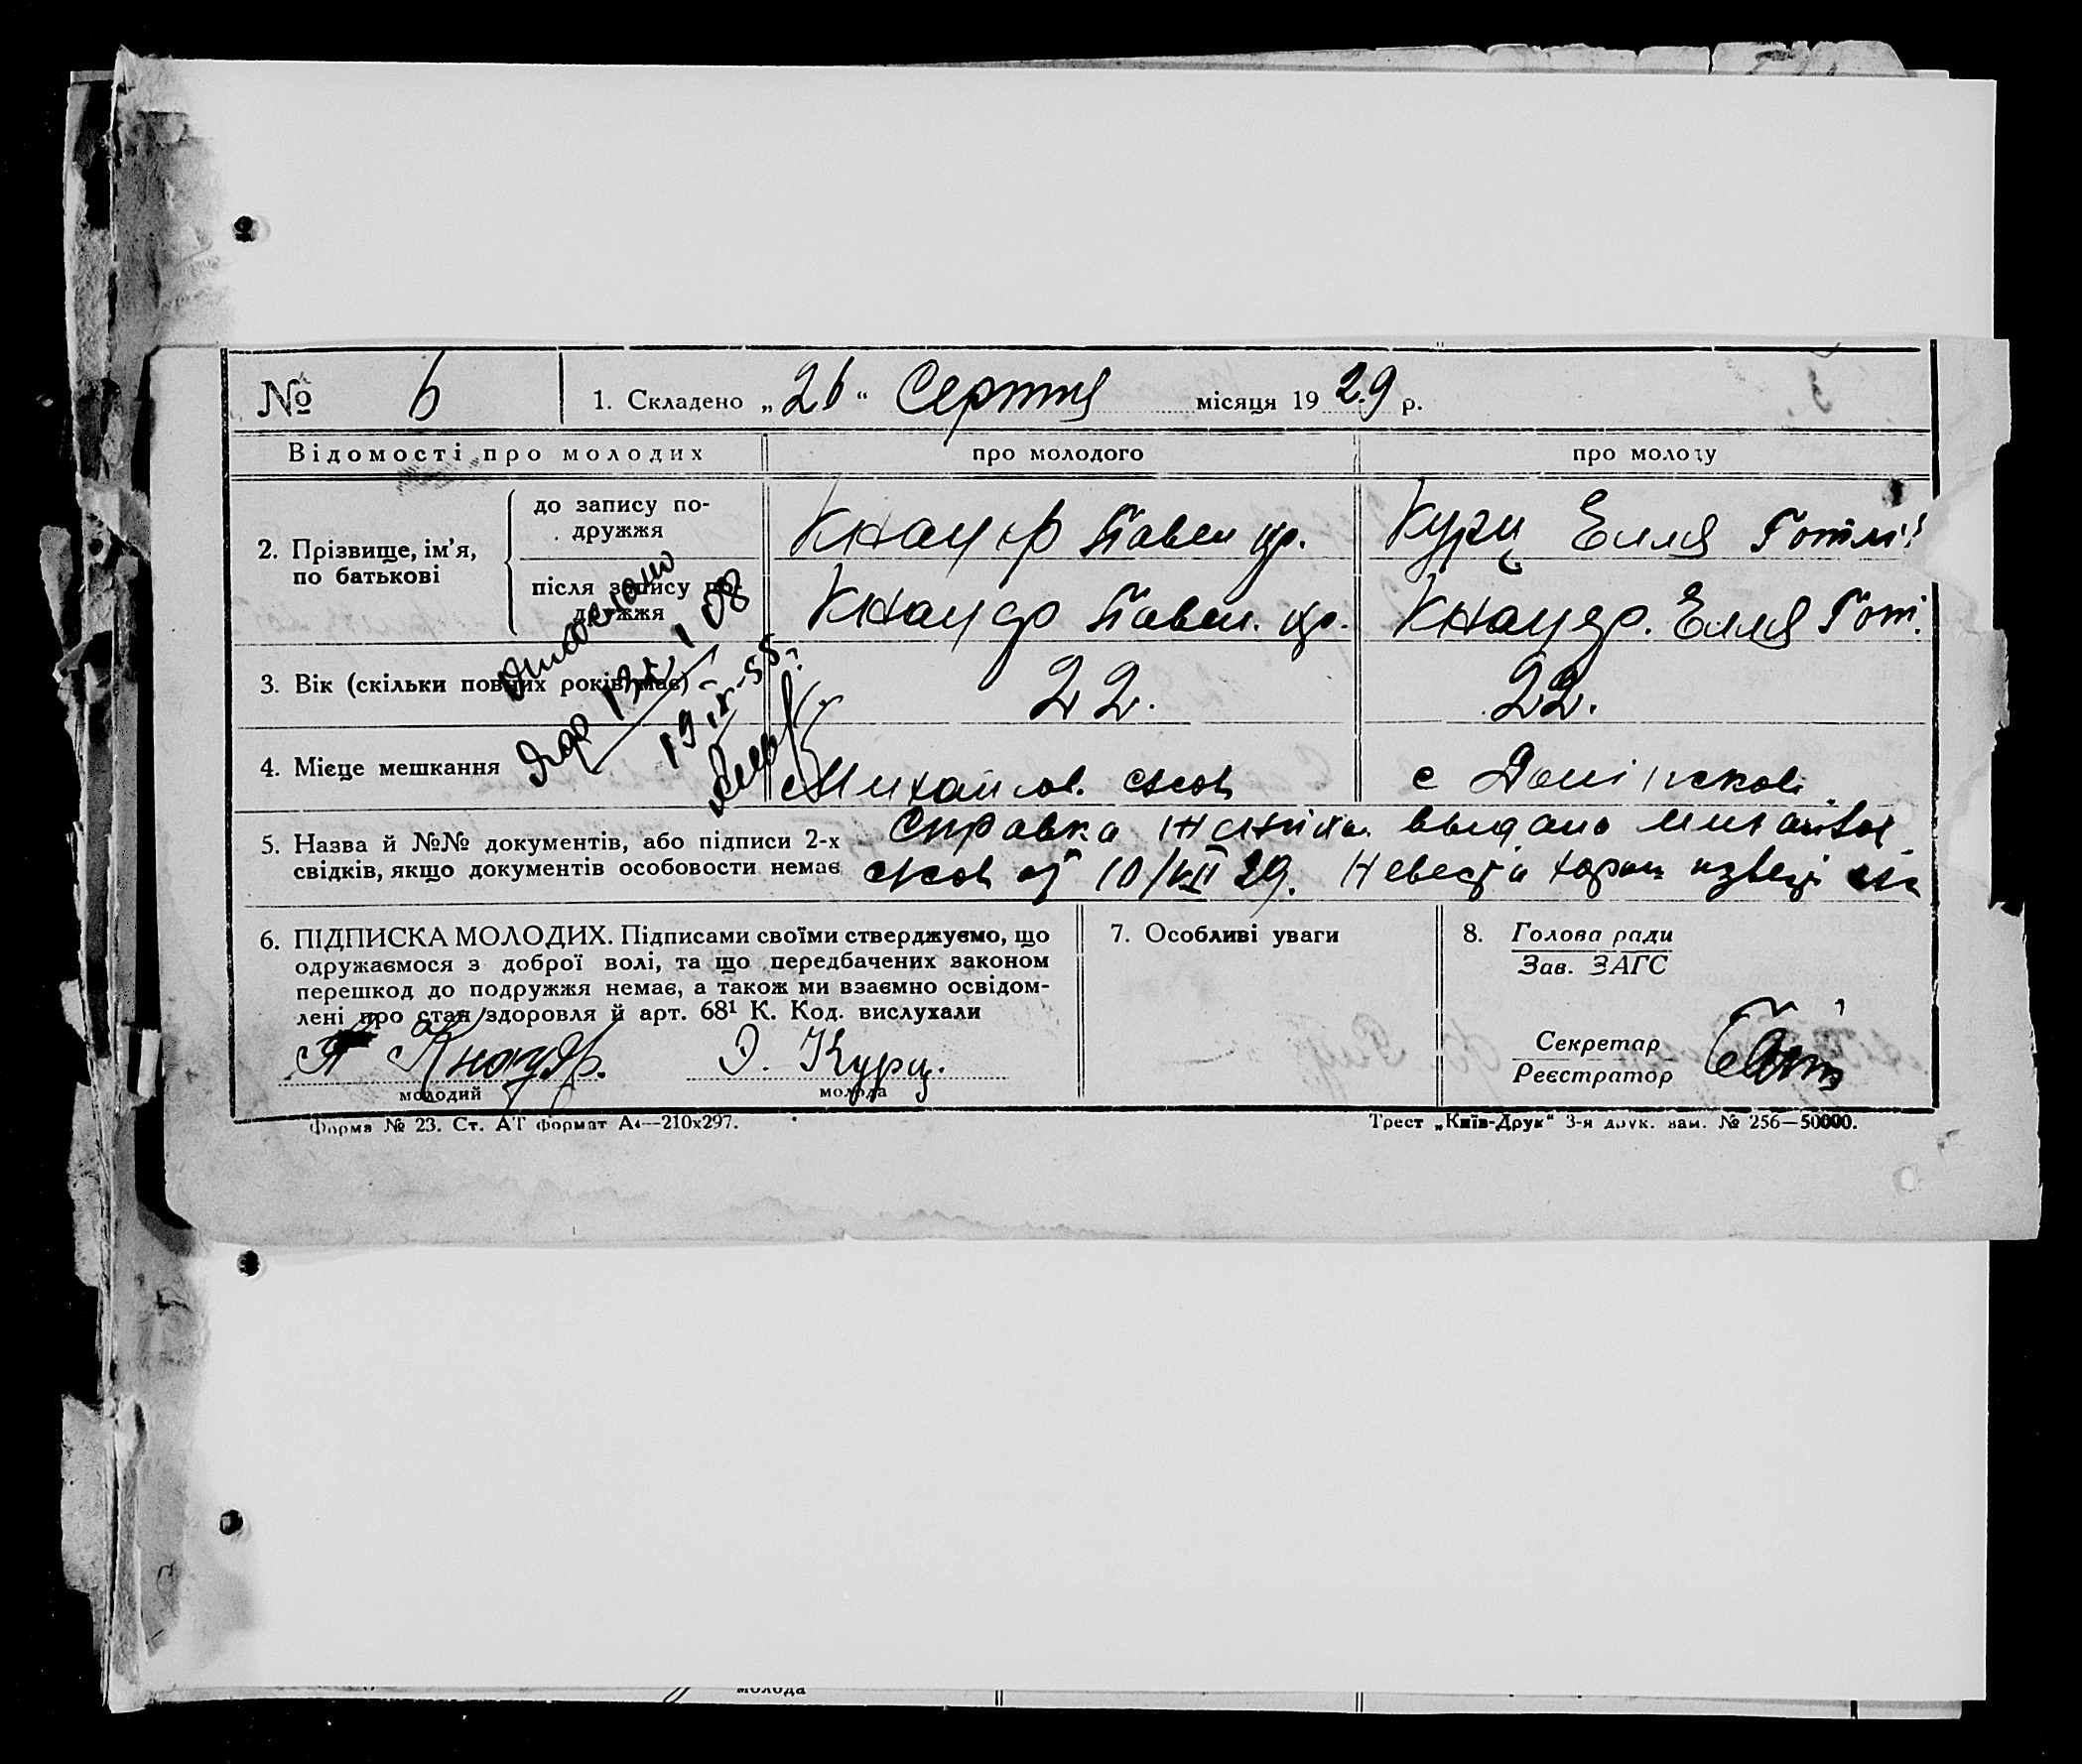 № 6 1. Складено „26“ Серпня місяця 1929 р.
Відомості про молодих про молодого про молоду
2. Прізвище, ім’я, по батькові
до запису подружжя Кнауер Павел Кр. Курц Елля Готлі
після запису подружжя Кнауер Павел. Кр. Кнауер. Елля Гот.
3. Вік (скільки повних років має) 22. 22.
4. Місце мешкання Михайлов. с
19 IX-55
5. Назва й №№ документів, або підписи 2-х Справка выдана
свідків, якщо документів особовости немає от 10/VIII 29. Невеста
6. ПІДПИСКА МОЛОДИХ. Підписами своїми стверджуємо, що
одружаємося з доброї волі, та що передбачених законом
перешкод до подружжя немає, а також ми взаємно освідом-
лені про стан здоровля й арт. 68¹ К. Код. вислухали
П Кнауер. Э. Курц.
молодий молода
7. Особливі уваги
8. Голова ради
Зав. ЗАГС
Секретар
Реєстратор
Форма № 23. Ст. АТ формат А4—210x297. Трест „Київ-Друк“ 3-я друк. зам. № 256—50000.
молода